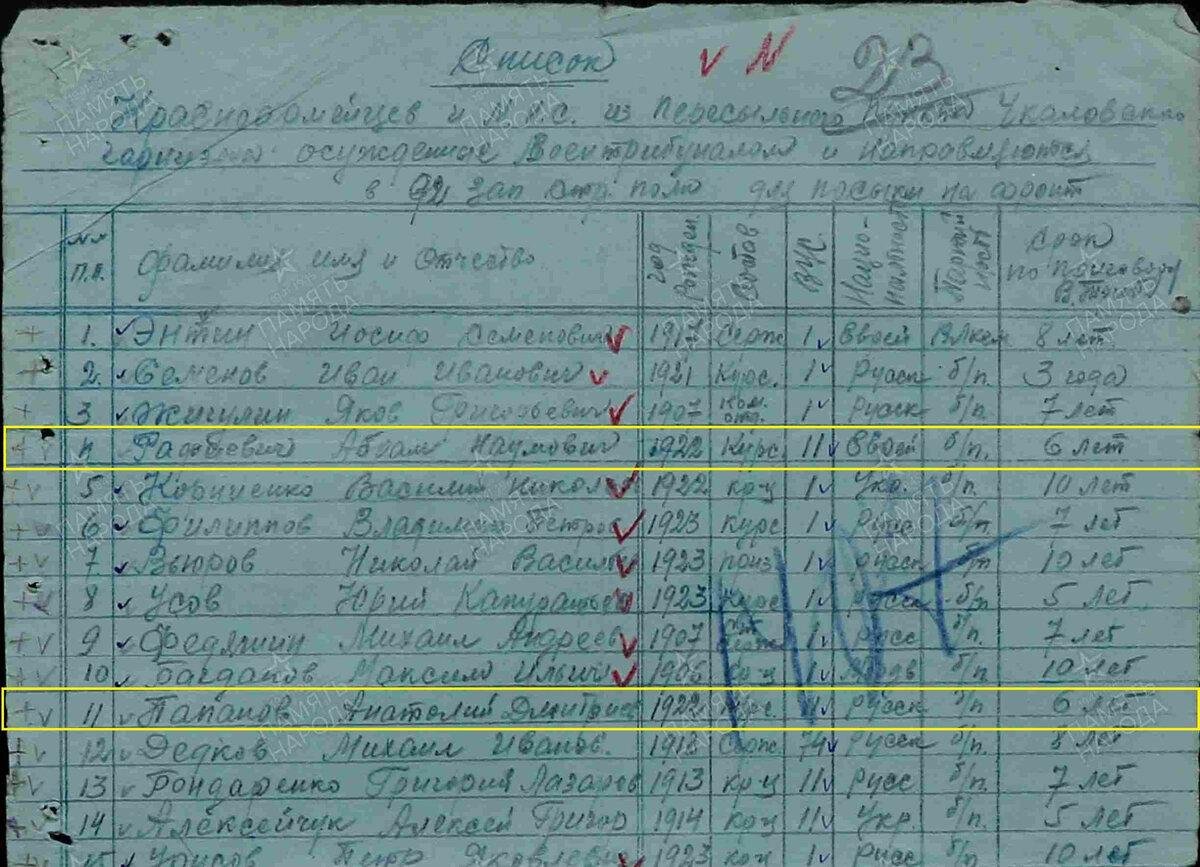 Список
V N 23
Краснофамейцев и М.Н.С. из пересыльного Чкаловского
гарнизона осужденные Военгрибуналом и направляются
в зап стр. полк для посыки на фронт
№№ п.п. Фамилия имя и Отчество год Рожден. Состав ВУС. Нацио-нальность Партийность Срок по приговору В. Триб
+ 1. Энтин Иосиф Семенович 1912 Серж 1 Еврей ВЛКСМ 8 лет
+ 2. Семенов Иван Иванович 1921 Курс. 1 Русск б/п. 3 года
+ 3 Жигулин Яков Григорьевич 1907 Ком. отд. 1 Русск б/п. 7 лет
Абрам Наумович 1922 Курс 11 Еврей б/п. 6 лет
+v 5 Корниенко Василий Никол 1922 кр-ц 1 Укр. б/п. 10 лет
+v 6 Филиппов Владимир Петров 1923 Курс 1 Русс б/п. 7 лет
+v 7 Вьюров Николай Василь 1923 1 Русск 10 лет
+v 8 Усов Юрий 1923 Курс 1 Русск б/п 5 лет.
+v 9 Федяшин Михаил Андреев 1907 1 Русс б/п. 7 лет
+v 10 Максим Ильич 1906 кр-ц 1 б/п 10 лет
+v 11 Папанов Анатолий Дмитриев 1922 Курс. Русск б/п. 6 лет
+v 12 Дедков Михаил Иванов. 1918 Серж 74 Русск б/п. 8 лет
+v 13 Бондаренко Григорий Лазарев 1913 кр-ц 11 Русс б/п. 7 лет
+v 14 Алексейчук Алексей Григор 1914 кр-ц 11 Укр б/п. 5 лет
15 Петр Яковлевич 1923 кр-ц 1 Русск б/п. 10 лет
ПАМЯТЬ НАРОДА